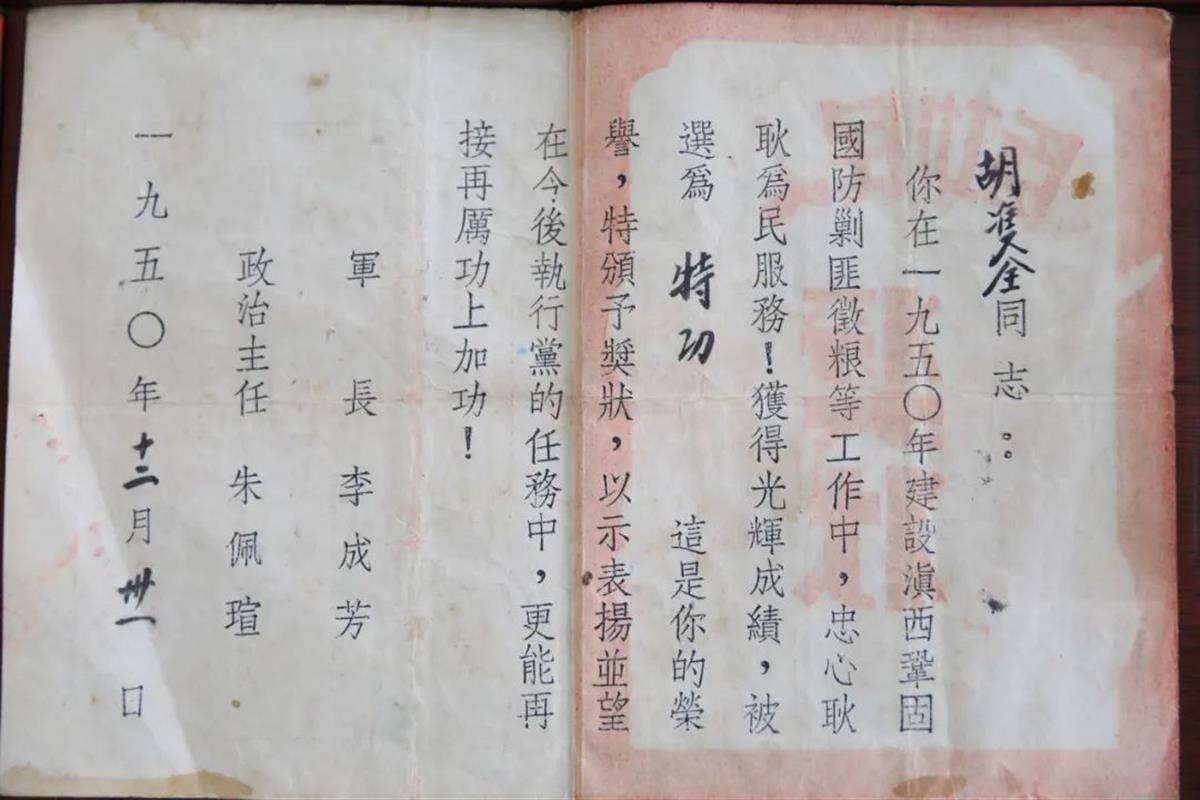 胡全同志：
你在一九五〇年建設滇西鞏固
國防剿匪徵粮等工作中，忠心耿
耿爲民服務！獲得光輝成績，被
選爲 特功 這是你的榮
譽，特頒予獎狀，以示表揚並望
在今後執行黨的任務中，更能再
接再厲功上加功！
軍長 李成芳
政治主任 朱佩瑄
一九五〇年十二月卅一日